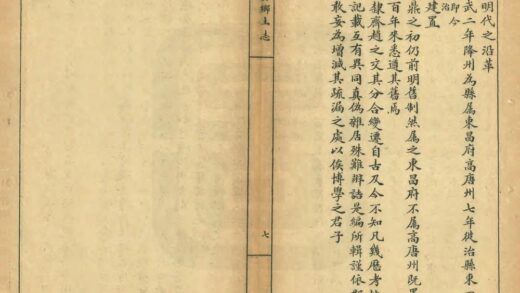 明代之沿革
武二年降州為縣屬東昌府高唐州七年徙治縣東
即今
治
建置
鼎之初仍前明舊制然屬之東昌府不屬高唐州既
百年來悉遵其舊焉
隸齊趙之交其分合變遷自古及今不知凡幾歷考
記載互有異同真偽雜居殊難辨詰是編所輯謹依
敢妄為增減其疏漏之處以俟博學之君子
鄉土志
七